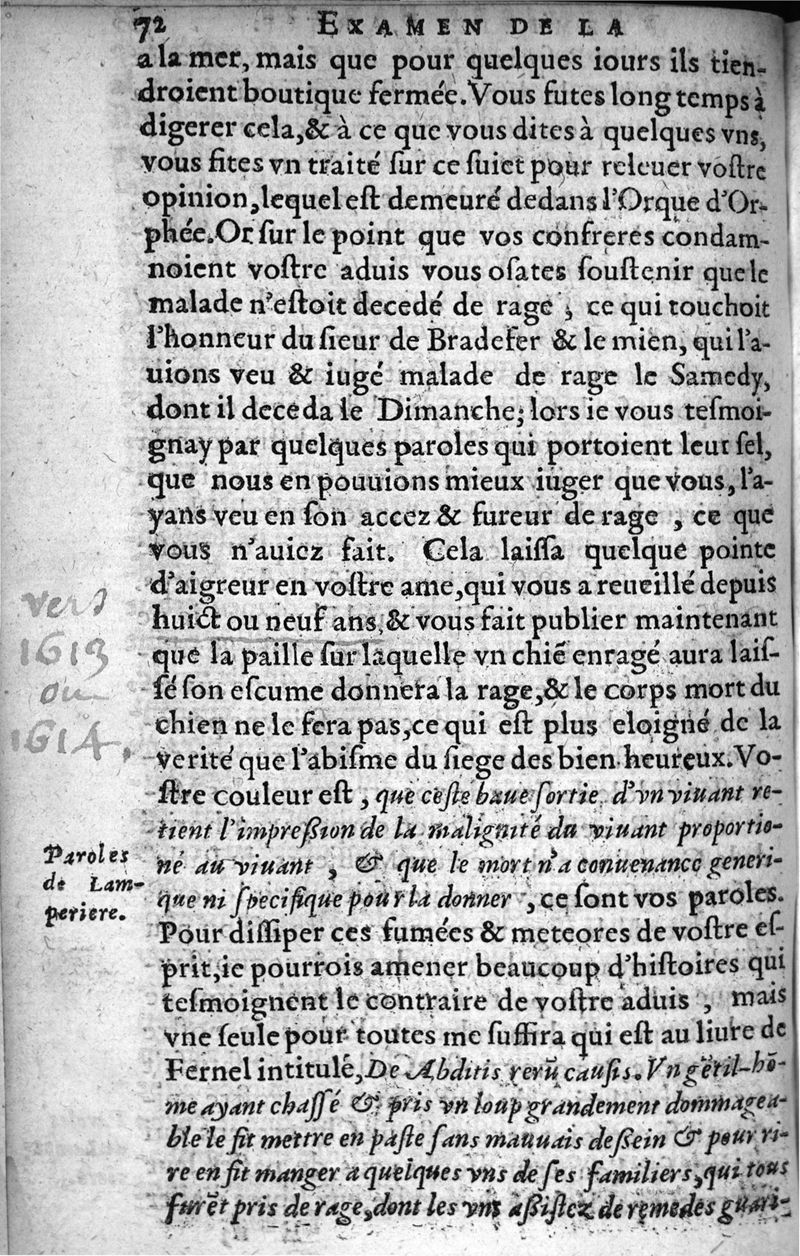 72 EXAMEN DE LA
a la mer, mais que pour quelques iours ils tien-
droient boutique fermée. Vous futes long temps à
digerer cela, & à ce que vous dites à quelques vns,
vous fites vn traité ſur ce ſuiet pour releuer voſtre
opinion, lequel eſt demeuré dedans l'Orque d'Or-
phée. Or ſur le point que vos confreres condam-
noient voſtre aduis vous oſates ſouſtenir que le
malade n'eſtoit decedé de rage ; ce qui touchoit
l'honneur du ſieur de Bradefer & le mien, qui l'a-
uions veu & iugé malade de rage le Samedy,
dont il deceda le Dimanche; lors ie vous teſmoi-
gnay par quelques paroles qui portoient leur ſel,
que nous en pouuions mieux iuger que vous, l'a-
yans veu en ſon accez & fureur de rage , ce que
vous n'auiez fait. Cela laiſſa quelque pointe
d'aigreur en voſtre ame, qui vous a reueillé depuis
huict ou neuf ans, & vous fait publier maintenant
que la paille ſur laquelle vn chiē enragé aura laiſ-
ſé ſon eſcume donnera la rage, & le corps mort du
chien ne le fera pas, ce qui eſt plus eloigné de la
verité que l'abiſme du ſiege des bien heureux. Vo-
ſtre couleur eſt , que ceſte baue ſortie d'vn viuant re-
tient l'impreſſion de la malignité du viuant proportio-
né au viuant , & que le mort n'a conuenance generi-
que ni ſpecifique pour la donner , ce ſont vos paroles.
Pour diſſiper ces fumées & meteores de voſtre eſ-
prit, ie pourrois amener beaucoup d'hiſtoires qui
teſmoignent le contraire de voſtre aduis , mais
vne ſeule pour toutes me ſuffira qui eſt au liure de
Fernel intitulé, De Abditis rerū cauſis. Vn gētil-hō-
me ayant chaſſé & pris vn loup grandement dommagea-
ble le fit mettre en paſte ſans mauuais deſſein & pour ri-
re en fit manger a quelques vns de ſes familiers, qui tous
furēt pris de rage, dont les vns aſſiſtez de remedes guari-
vers
1613
ou
1614.
Paroles
de Lam-
periere.